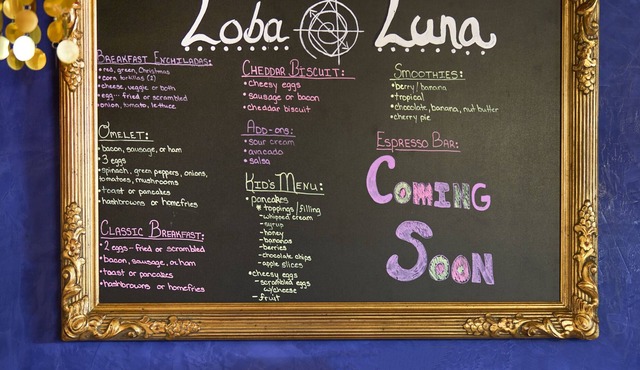 Loba Luna
BREAKFAST ENCHILADAS:
• red, green, Christmas
• corn tortillas (2)
• cheese, veggie or both
• egg... fried or scrambled
• onion, tomato, lettuce
OMELET:
• bacon, sausage, or ham
• 3 eggs
• spinach, green peppers, onions,
tomatoes, mushrooms
• toast or pancakes
• hashbrowns or homefries
CLASSIC BREAKFAST:
• 2 eggs - fried or scrambled
• bacon, sausage, or ham
• toast or pancakes
• hashbrowns or homefries
CHEDDAR BISCUIT:
• cheesy eggs
• sausage or bacon
• cheddar biscuit
ADD-ONS:
• sour cream
• avacado
• salsa
KID'S MENU:
• pancakes
* toppings/filling
- whipped cream
- syrus
- honey
- bananas
- berries
- chocolate chips
- apple slices
• cheesy eggs
- scrambled eggs
w/cheese
- fruit
SMOOTHIES:
• berry/banana
• tropical
• chocolate, banana, nut butter
• cherry pie
ESPRESSO BAR:
COMING
SOON